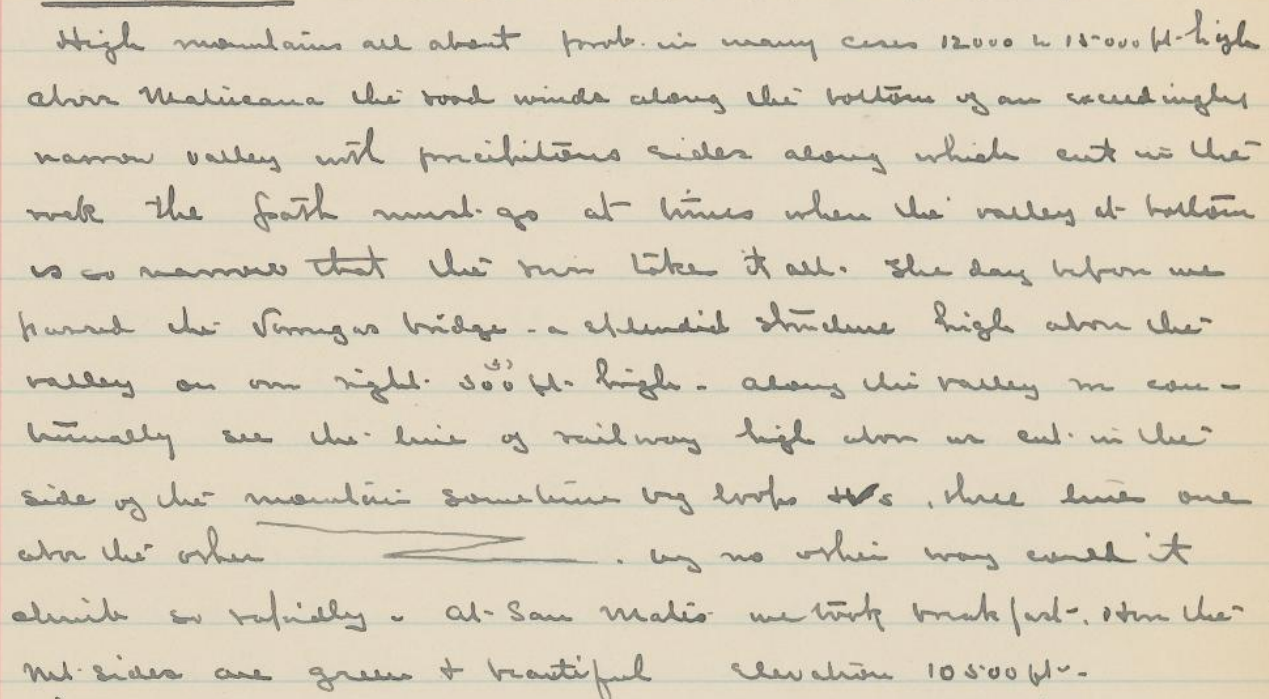 High mountains all about prob. in many cases 12000 to 15000 ft. high
above Matucana the road winds along the bottom of an exceedingly
narrow valley with precipitous sides along which cut in the
rock the path must go at times when the valley at bottom
is so narrow that the river takes it all. The day before we
passed the Verrugas bridge - a splendid structure high above the
valley on our right. 300 ft. high - along the valley we con-
tinually see the line of railway high above us cut in the
side of the mountain sometime by loops + Vs, three lines one
above the other . by no other way could it
climb so rapidly - At San Mateo we took breakfast. Here the
mt. sides are green + beautiful Elevation 10500 ft -